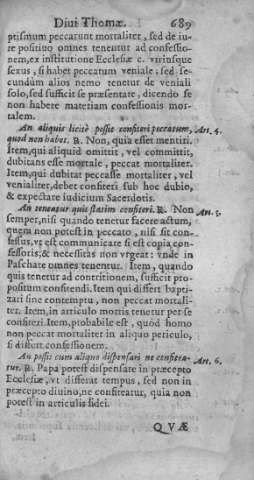 Diui Thomæ. 689
ptismum peccarunt mortaliter, sed de iu-
re positiuo omnes tenentur ad confessio-
nem, ex institutione Ecclesiæ c. vtriusque
sexus, si habet peccatum veniale; sed se-
cundùm alios nemo tenetur de veniali
solo, sed sufficit se præsentare, dicendo se
non habere materiam confessionis mor-
talem.
An aliquis licitè possit confiteri peccatum, Art. 4.
quod non habet. R. Non, quia esset mentiri.
Item, qui aliquid omittit, vel committit,
dubitans esse mortale, peccat mortaliter.
Item, qui dubitat peccasse mortaliter, vel
venialiter, debet confiteri sub hoc dubio,
& expectare iudicium Sacerdotis.
An teneatur quis statim confiteri. R. Non Art. 5.
semper, nisi quando tenetur facere actum,
quem non potest in peccato, nisi sit con-
fessus, vt est communicare si est copia con-
fessoris; & necessitas non vrgeat: vnde in
Paschate omnes tenentur. Item, quando
quis tenetur ad contritionem, sufficit pro-
positum confitendi. Item qui differt bapti-
zari sine contemptu, non peccat mortali-
ter. Item, in articulo mortis tenetur per se
confiteri Item, probabile est, quòd homo
non peccat mortaliter in aliquo periculo,
si differt confessionem.
An possit cum aliquo dispensari ne confitea- Art. 6.
tur. R. Papa potest dispensare in præcepto
Ecclesiæ, vt differat tempus, sed non in
præcepto diuino, ne confiteatur, quia non
potest in articulis fidei.
QVÆ